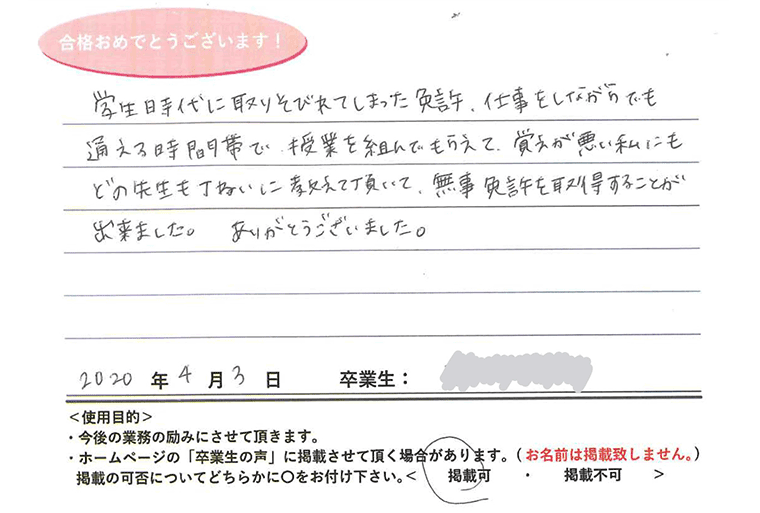 合格おめでとうございます！
学生時代に取りそびれてしまった免許、仕事をしながらでも
通える時間帯で授業を組んでもらえて、覚えが悪い私にも
どの先生も丁ねいに教えて頂いて、無事免許を取得することが
出来ました。 ありがとうございました。
2020 年 4 月 3 日 卒業生：
＜使用目的＞
・今後の業務の励みにさせて頂きます。
・ホームページの「卒業生の声」に掲載させて頂く場合があります。（お名前は掲載致しません。）
掲載の可否についてどちらかに〇をお付け下さい。＜ 掲載可 ・ 掲載不可 ＞